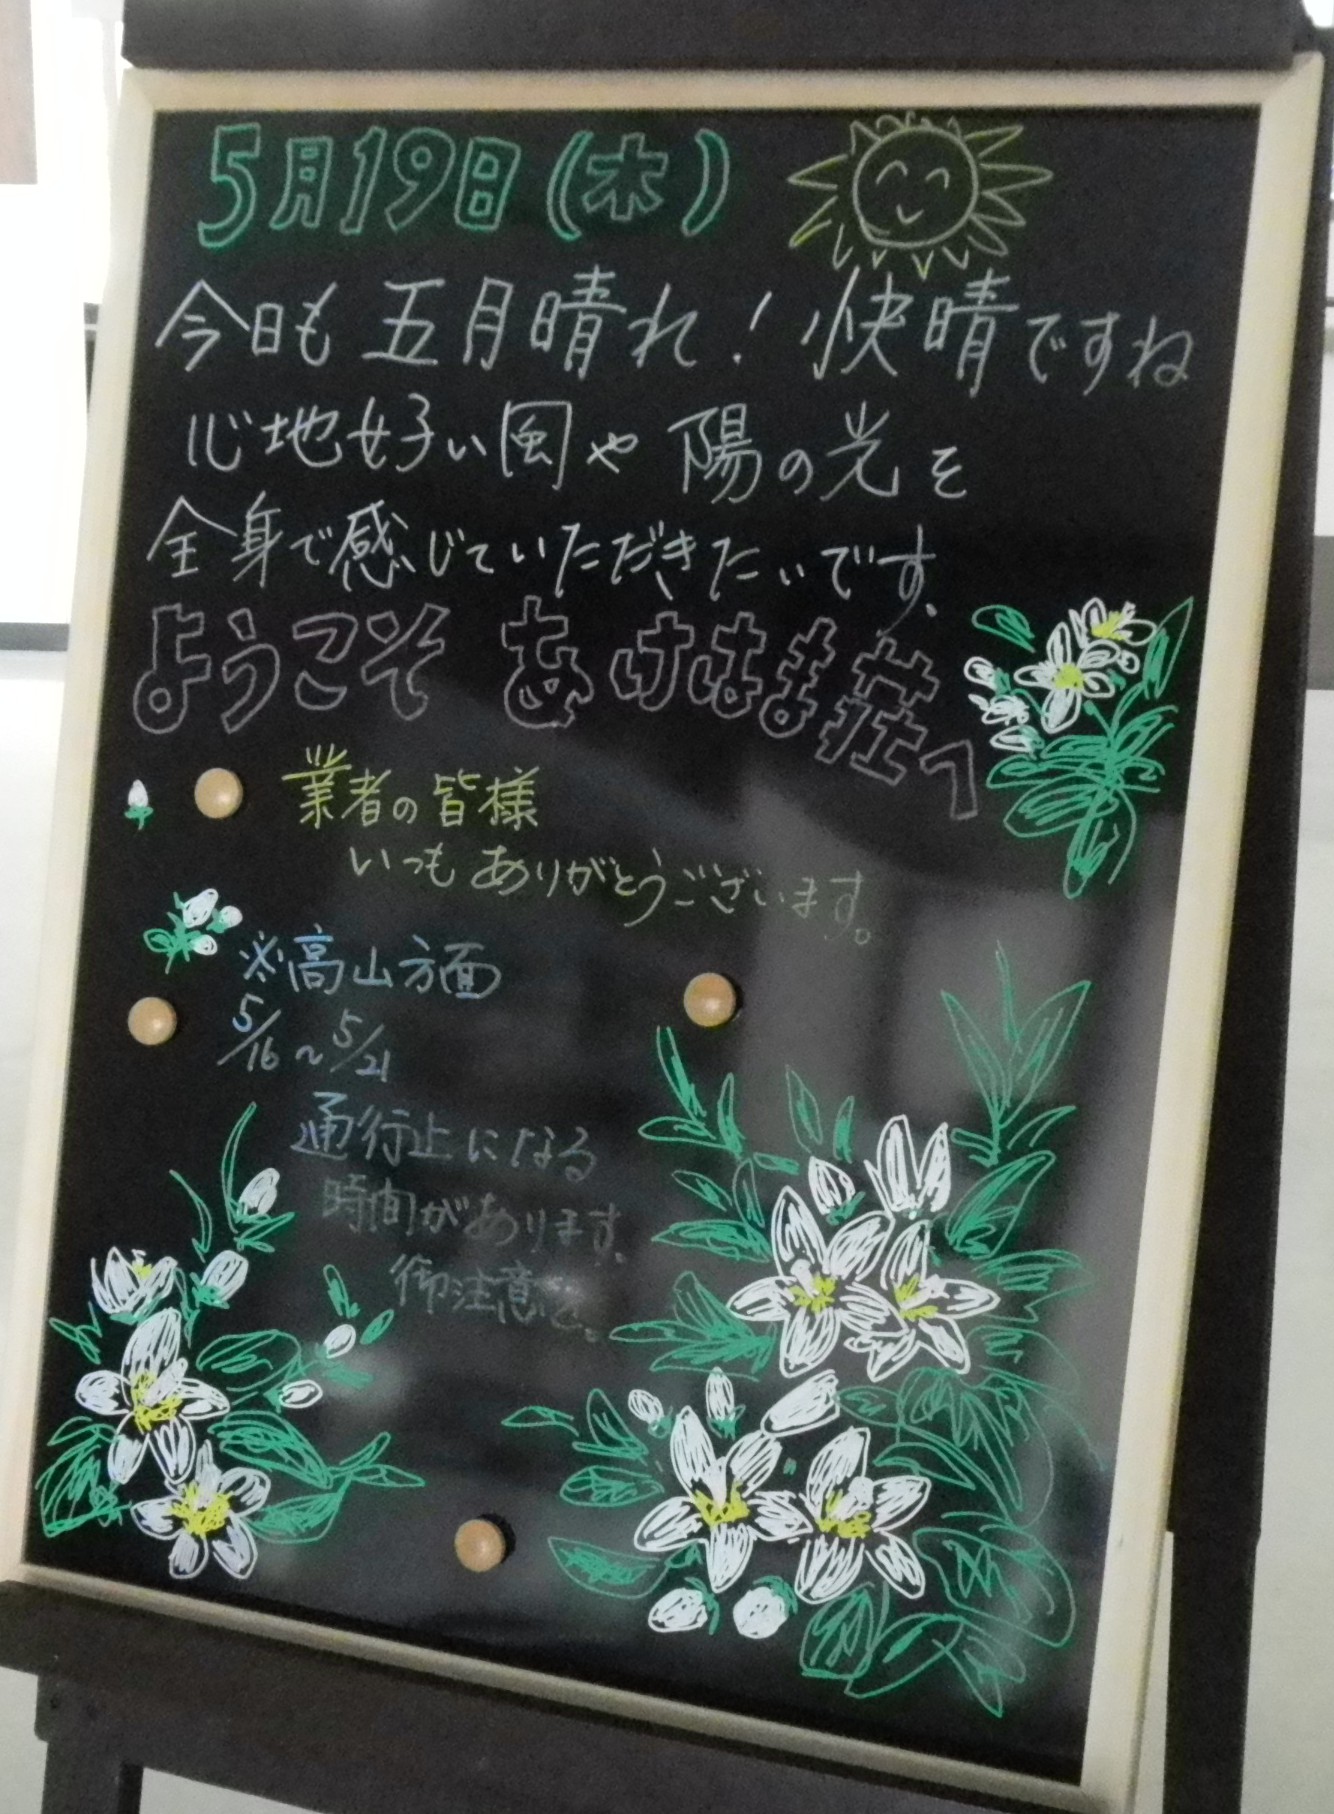 5月19日(木)
今日も 五月晴れ! 快晴ですね
心地好い風や 陽の光を
全身で感じていただきたいです.
ようこそ あけはま荘へ
業者の皆様
いつも ありがとうございます。
※高山方面
5/16~5/21
通行止になる
時間があります.
御注意を。